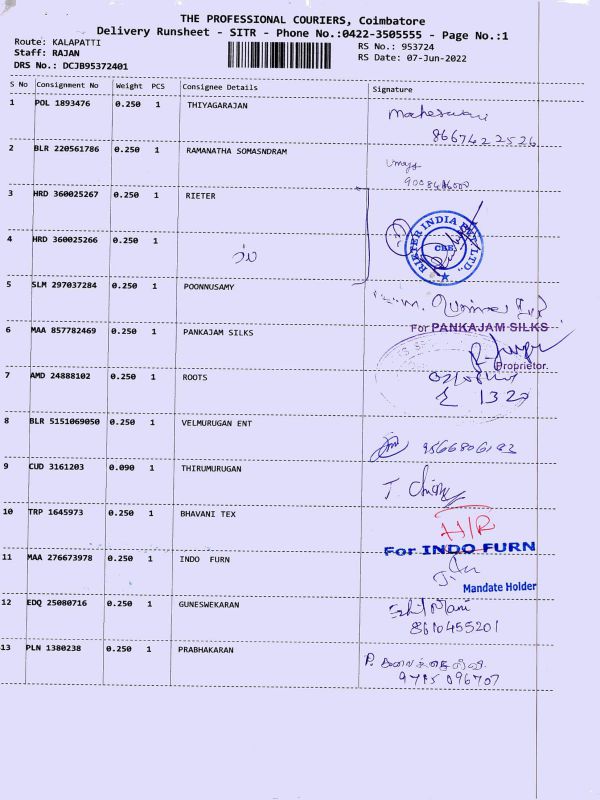 THE PROFESSIONAL COURIERS, Coimbatore
Delivery Runsheet - SITR - Phone No.:0422-3505555 - Page No.:1
Route: KALAPATTI
Staff: RAJAN
DRS No.: DCJB95372401
RS No.: 953724
RS Date: 07-Jun-2022
S No Consignment No Weight PCS Consignee Details Signature
1 POL 1893476 0.250 1 THIYAGARAJAN
8667422526
2 BLR 220561786 0.250 1 RAMANATHA SOMASNDRAM
3 HRD 360025267 0.250 1 RIETER
RIETER INDIA PVT. LTD.,
CBE
4 HRD 360025266 0.250 1
5 SLM 297037284 0.250 1 POONNUSAMY
6 MAA 857782469 0.250 1 PANKAJAM SILKS
For PANKAJAM SILKS
Proprietor.
7 AMD 24888102 0.250 1 ROOTS
8 BLR 5151069050 0.250 1 VELMURUGAN ENT
9 CUD 3161203 0.090 1 THIRUMURUGAN
10 TRP 1645973 0.250 1 BHAVANI TEX
H/R
11 MAA 276673978 0.250 1 INDO FURN
For INDO FURN
Mandate Holder
12 EDQ 25080716 0.250 1 GUNESWEKARAN
8610455201
13 PLN 1380238 0.250 1 PRABHAKARAN